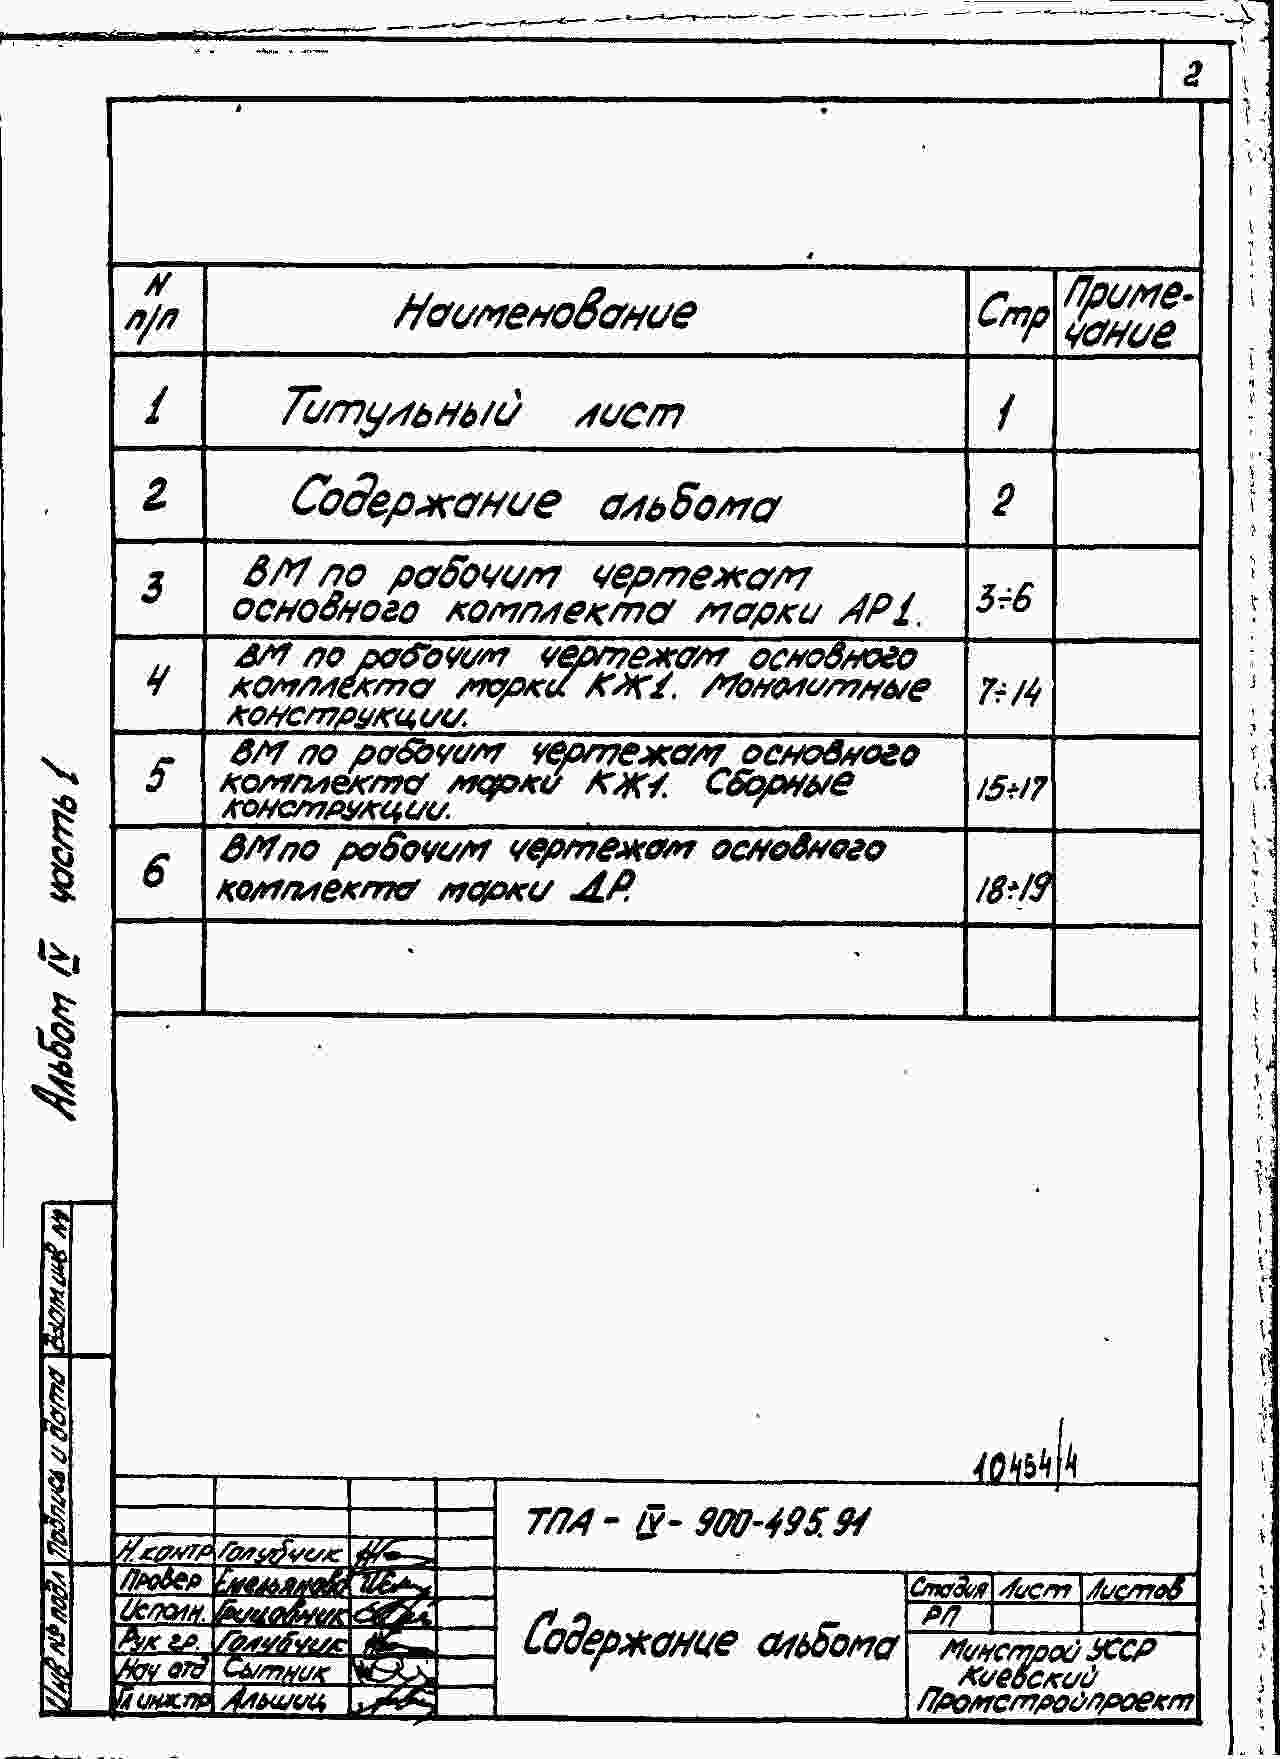 2
N п/п Наименование Стр Приме-
чание
1 Титульный лист 1
2 Содержание альбома 2
3 ВМ по рабочим чертежам
основного комплекта марки АР1. 3÷6
4 ВМ по рабочим чертежам основного
комплекта марки КЖ1. Монолитные 7÷14
конструкции.
5 ВМ по рабочим чертежам основного
комплекта марки КЖ1. Сборные 15÷17
конструкции.
6 ВМ по рабочим чертежам основного
комплекта марки ДР. 18÷19
Альбом IV часть 1
Взам инв №
Подпись и дата
Инв № подл
10454/4
ТПА - IV - 900-495.91
Н.контр Голубчик
Провер Емельянова
Исполн. Грицовник
Рук гр. Голубчик
Нач отд Сытник
Гл инж.пр Альшиц
Содержание альбома
Стадия Лист Листов
РП
Минстрой УССР
Киевский
Промстройпроект